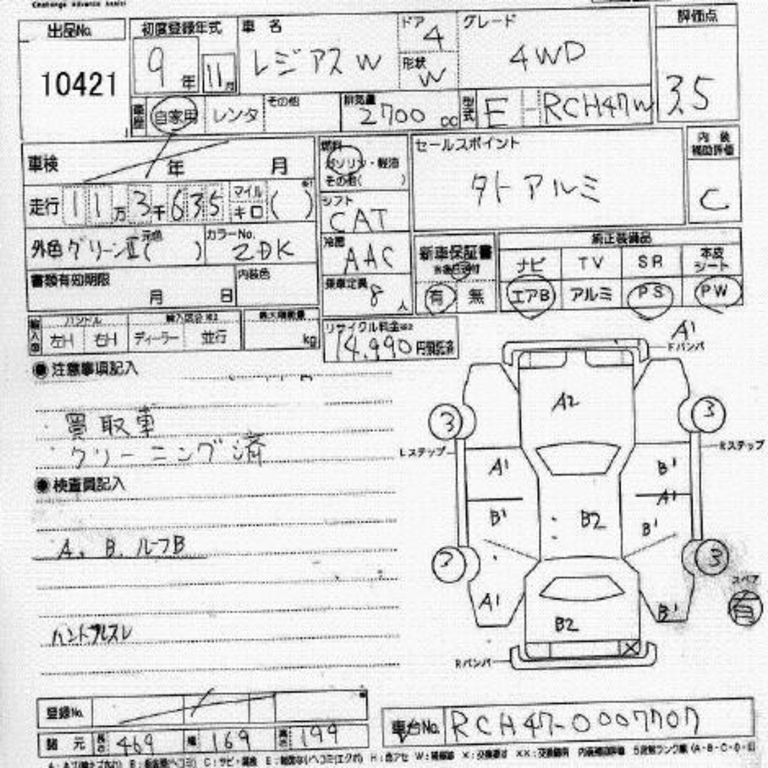 出品No.
10421
初度登録年式
9年 11月
車名
レジアスW
ドア
4
形状
W
グレード
4WD
評価点
3.5
車歴 自家用 レンタ その他
排気量
2700cc
型式
E-RCH47W
車検 年 月
燃料
ガソリン・軽油
その他( )
セールスポイント
タトアルミ
内装補助評価
C
走行 11万3千635 マイル キロ ( )
シフト
CAT
外色 グリーンII 元色( )
カラーNo.
2DK
冷房
AAC
新車保証書
有 無
純正装備品
ナビ TV SR 本皮シート
エアB アルミ PS PW
書類有効期限
月 日
内装色
乗車定員
8人
輸入車
ハンドル
左H 右H
ディーラー 並行
最大積載量
kg
リサイクル料金※2
14,990円預託済
● 注意事項記入
買取車
クリーニング済
● 検査員記入
A、B、ルーフB
A1
Fバンパ
A2
3
3
Lステップ
Rステップ
A1
B1
A1
B1
B2
B1
2
3
スペア
有
A1
B2
B1
X
Rバンパ
登録No.
諸元 長さ 469 幅 169 高さ 199
車台No. RCH47-0007707